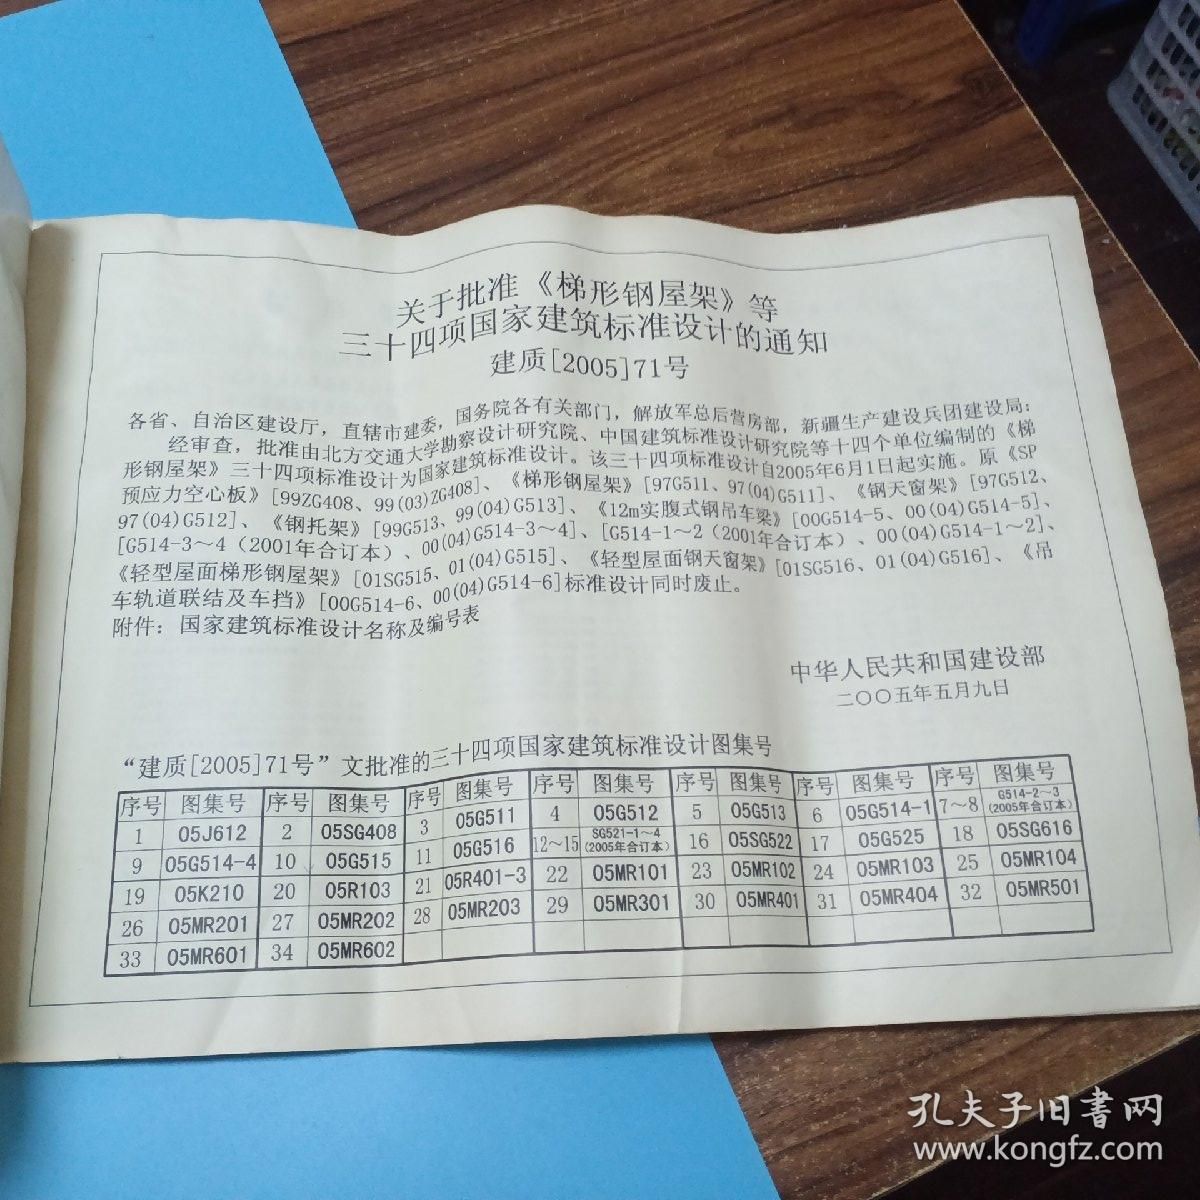 关于批准《梯形钢屋架》等
三十四项国家建筑标准设计的通知
建质[2005]71号
各省、自治区建设厅，直辖市建委，国务院各有关部门，解放军总后营房部，新疆生产建设兵团建设局：
经审查，批准由北方交通大学勘察设计研究院、中国建筑标准设计研究院等十四个单位编制的《梯
形钢屋架》三十四项标准设计为国家建筑标准设计。该三十四项标准设计自2005年6月1日起实施。原《SP
预应力空心板》[99ZG408、99(03)ZG408]、《梯形钢屋架》[97G511、97(04)G511]、《钢天窗架》[97G512、
97(04)G512]、《钢托架》[99G513、99(04)G513]、《12m实腹式钢吊车梁》[00G514-5、00(04)G514-5]、
[G514-3～4（2001年合订本）、00(04)G514-3～4]、[G514-1～2（2001年合订本）、00(04)G514-1～2]、
《轻型屋面梯形钢屋架》[01SG515、01(04)G515]、《轻型屋面钢天窗架》[01SG516、01(04)G516]、《吊
车轨道联结及车挡》[00G514-6、00(04)G514-6]标准设计同时废止。
附件：国家建筑标准设计名称及编号表
中华人民共和国建设部
二〇〇五年五月九日
“建质[2005]71号”文批准的三十四项国家建筑标准设计图集号
序号 图集号 序号 图集号 序号 图集号 序号 图集号 序号 图集号 序号 图集号 序号 图集号
1 05J612 2 05SG408 3 05G511 4 05G512 5 05G513 6 05G514-1 7～8 G514-2～3（2005年合订本）
9 05G514-4 10 05G515 11 05G516 12～15 SG521-1～4（2005年合订本） 16 05SG522 17 05G525 18 05SG616
19 05K210 20 05R103 21 05R401-3 22 05MR101 23 05MR102 24 05MR103 25 05MR104
26 05MR201 27 05MR202 28 05MR203 29 05MR301 30 05MR401 31 05MR404 32 05MR501
33 05MR601 34 05MR602
孔夫子旧书网
www.kongfz.com